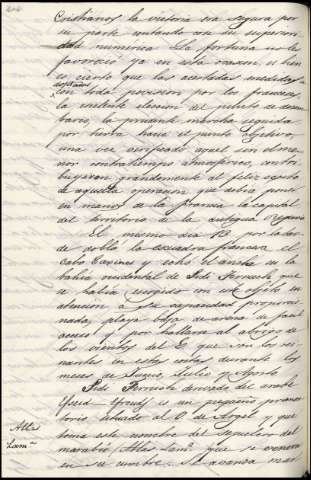 Cristianos la victoria era segura por
su parte contando con su superiori
dad numerica. La fortuna no le
favoreció ya en esta ocasion si bien
es cierto que las acertadas medidas
adoptadas con toda prevision por los franceses,
la excelente eleccion del punto de desem
barco, la prudente marcha seguida
por tierra hacia el punto objetivo,
una vez verificado aquel sin el me
nor contratiempo atmosferico, contri
buyeron grandemente al feliz exito
de aquella operacion que debia poner
en manos de la Francia la capital
del territorio de la antigua Regencia
El mismo dia 13 por la tar
de dobló la escuadra francesa el
Cabo Caxines y echó el ancla en la
bahia occidental de Sidi Ferruch, que
se habia escogido con este objeto en
atencion á su capacidad proporcio
nada, playa baja de arena de facil
acceso y por hallarse al abrigo de
los vientos del E. que son los rei
nantes en estas costas durante los
meses de Junio, Julio y Agosto.
Sidi Ferruch derivado del arabe
es un pequeño promon
torio situado al O. de Argel y que
toma este nombre del sepulcro del
marabú que se venera
en su cumbre. Se avanza mar